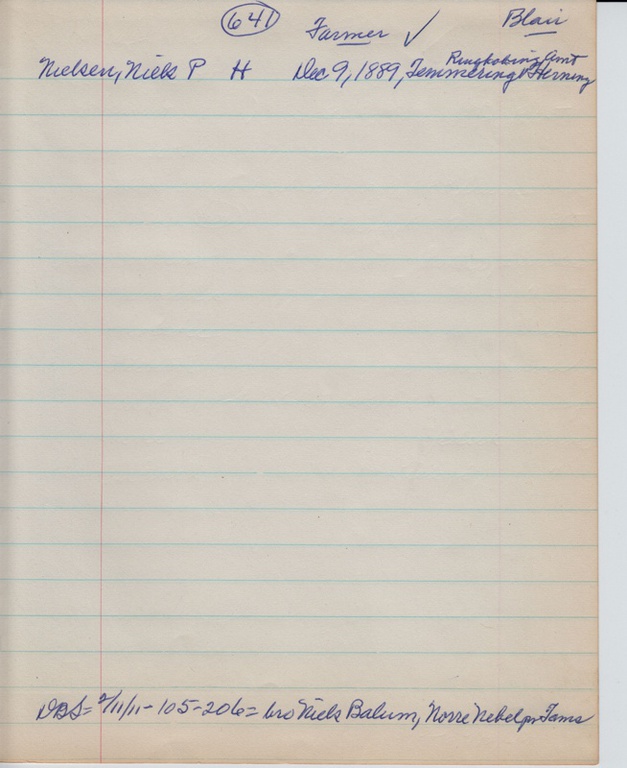 641 Farmer ✓ Blair
Ringkobing Amt
Nielsen, Niels P H Dec 9, 1889, Temmering Herning
DBS= 2/11/11-105-206= bro Niels Balum, Norre Nebel pr Tarm